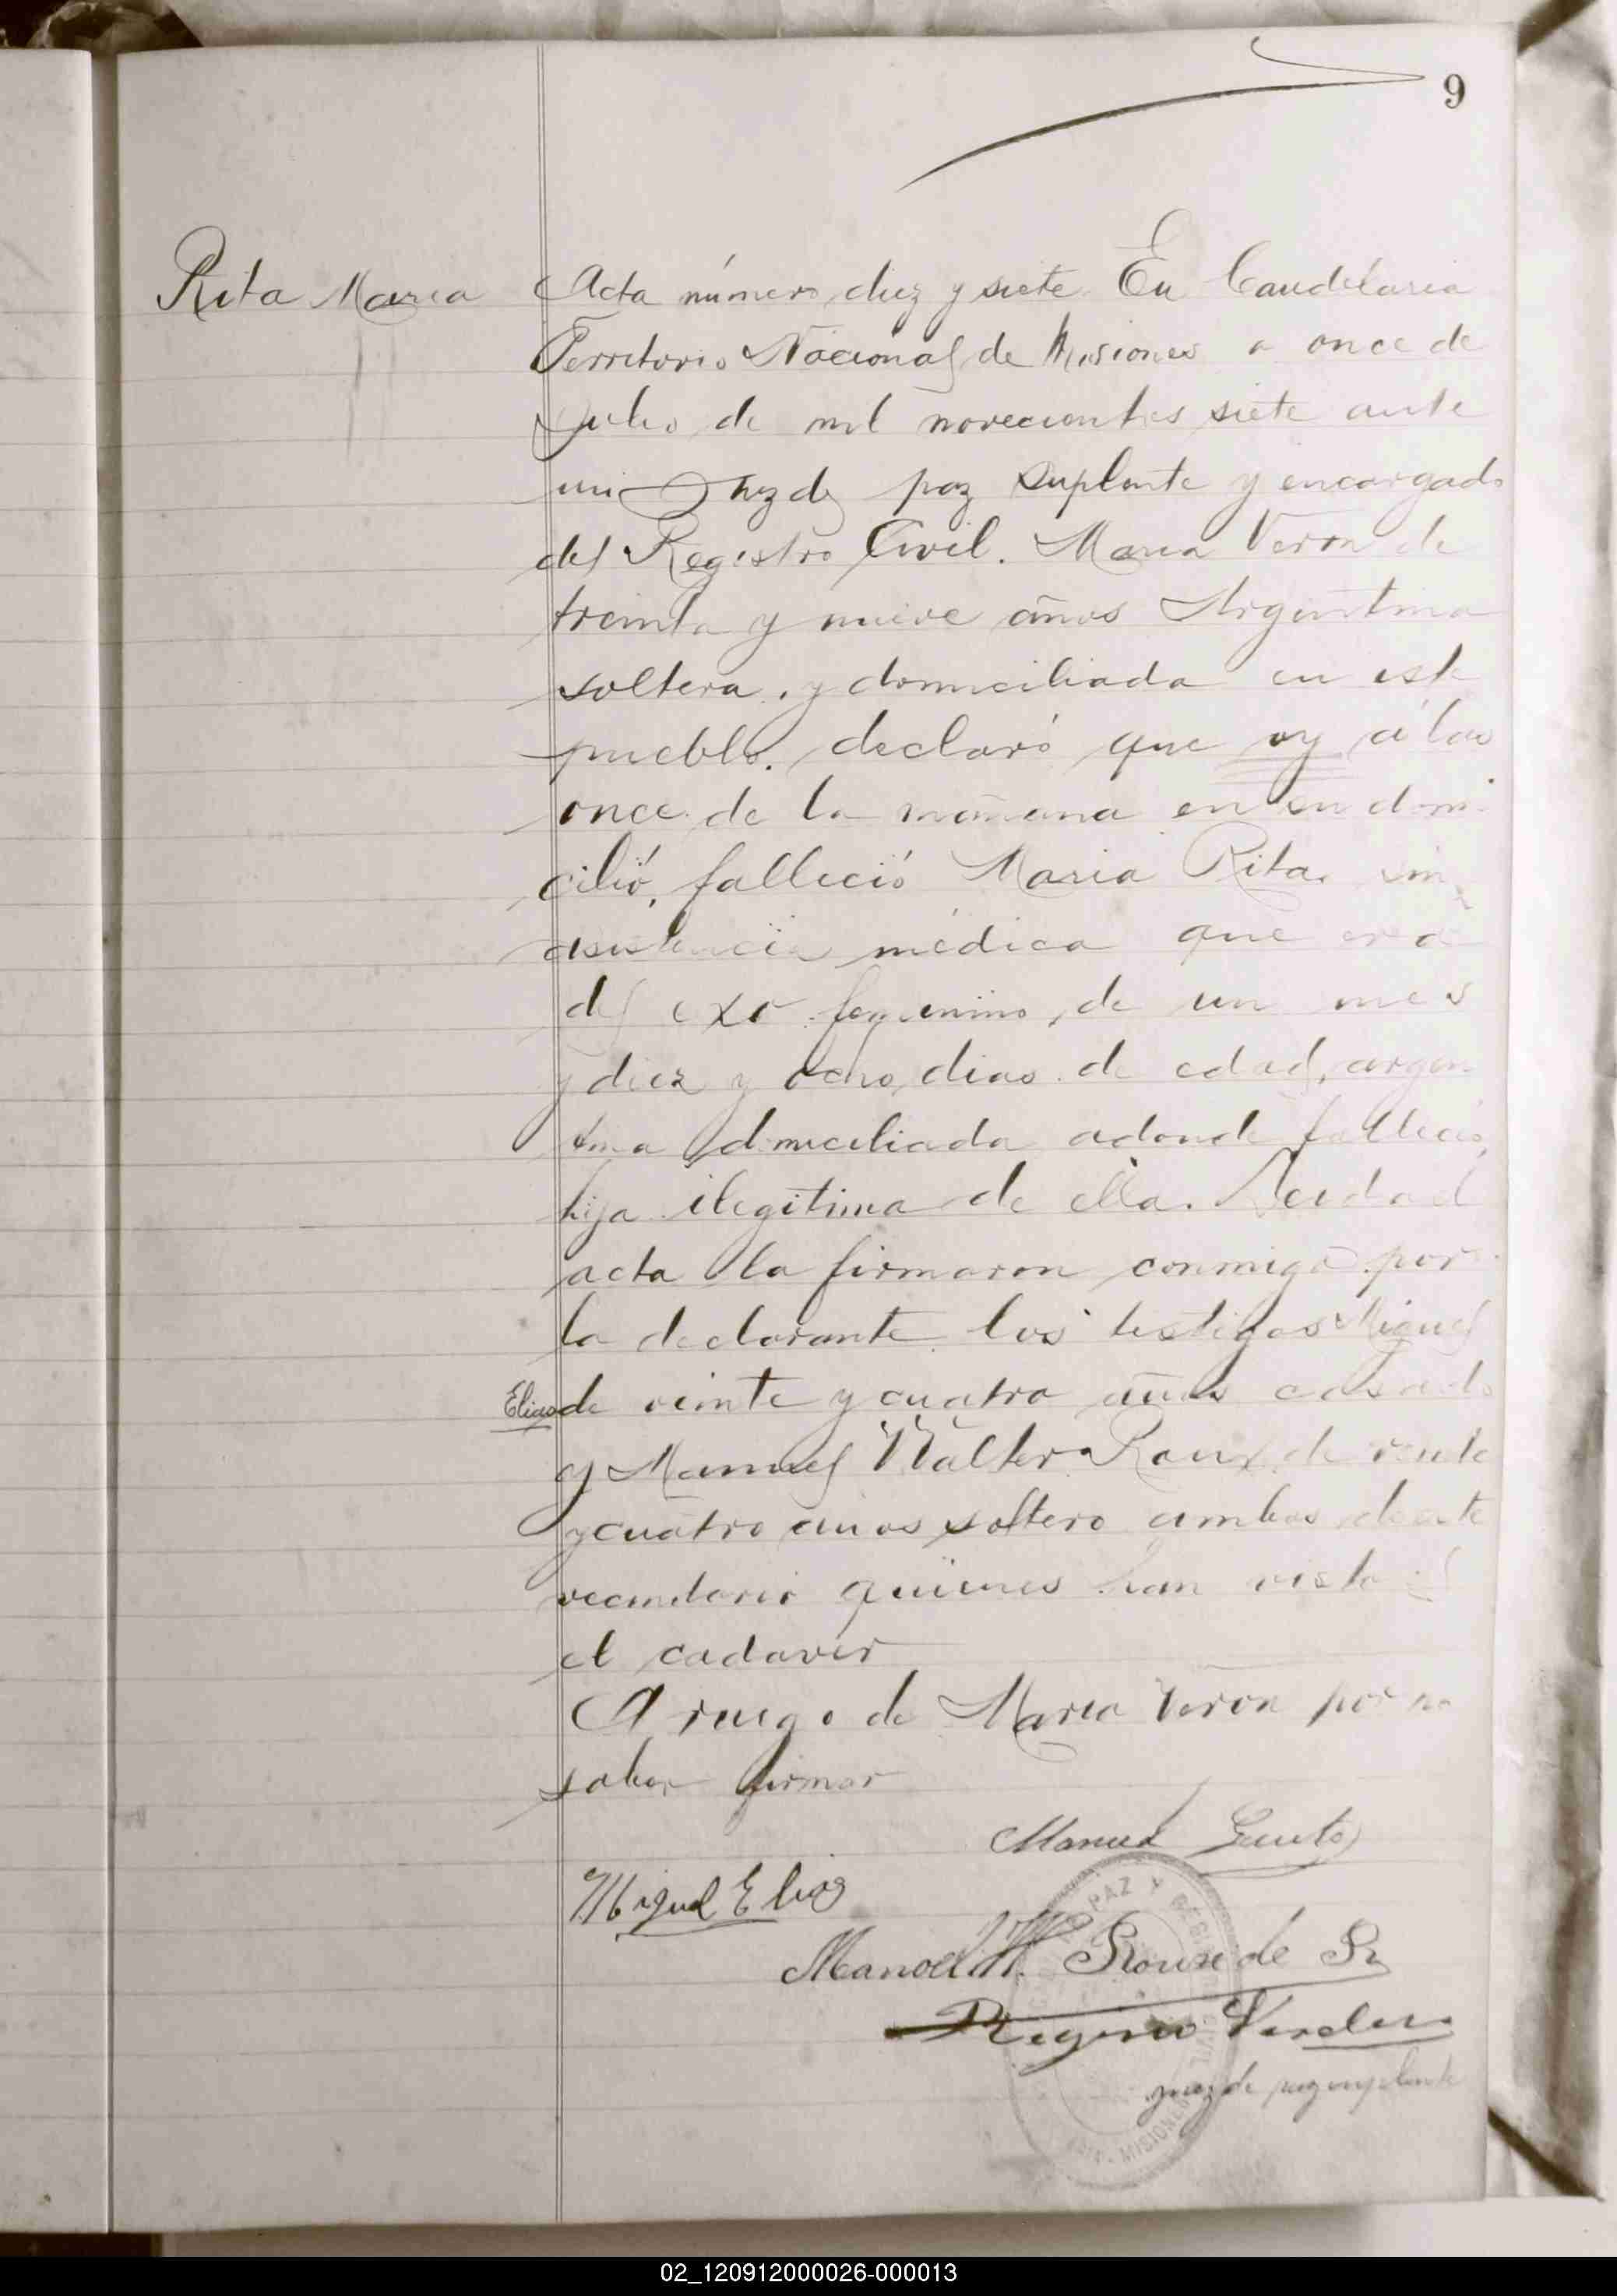 9
Rita Maria
Acta número diez y siete. En Candelaria
Territorio Nacional de Misiones a once de
Julio de mil novecientos siete ante
mi Juez de paz suplente y encargado
del Registro Civil. Maria Veron de
treinta y nueve años Argentina
soltera, y domiciliada en este
pueblo, declaró que oy á las
once de la mañana en su domi-
cilió, falleció Maria Rita, sin
asistencia médica que era
del exo femenino, de un mes
y diez y ocho dias de edad, argen-
tina domiciliada adonde falleció,
hija ilegitima de ella. Leida el
acta la firmaron conmigo por
la declarante los testigos Miguel
Elias de veinte y cuatro años casado
y Manuel Walter Roux de veinte
y cuatro años soltero ambos de este
vecindario quienes han visto
el cadaver
A ruego de Maria Veron por no
saber firmar
Manuel
Miguel Elias
Manoel W. Roux de
Regino
juez de paz suplente
PAZ Y REGISTRO CIVIL
MISIONES
02_120912000026-000013